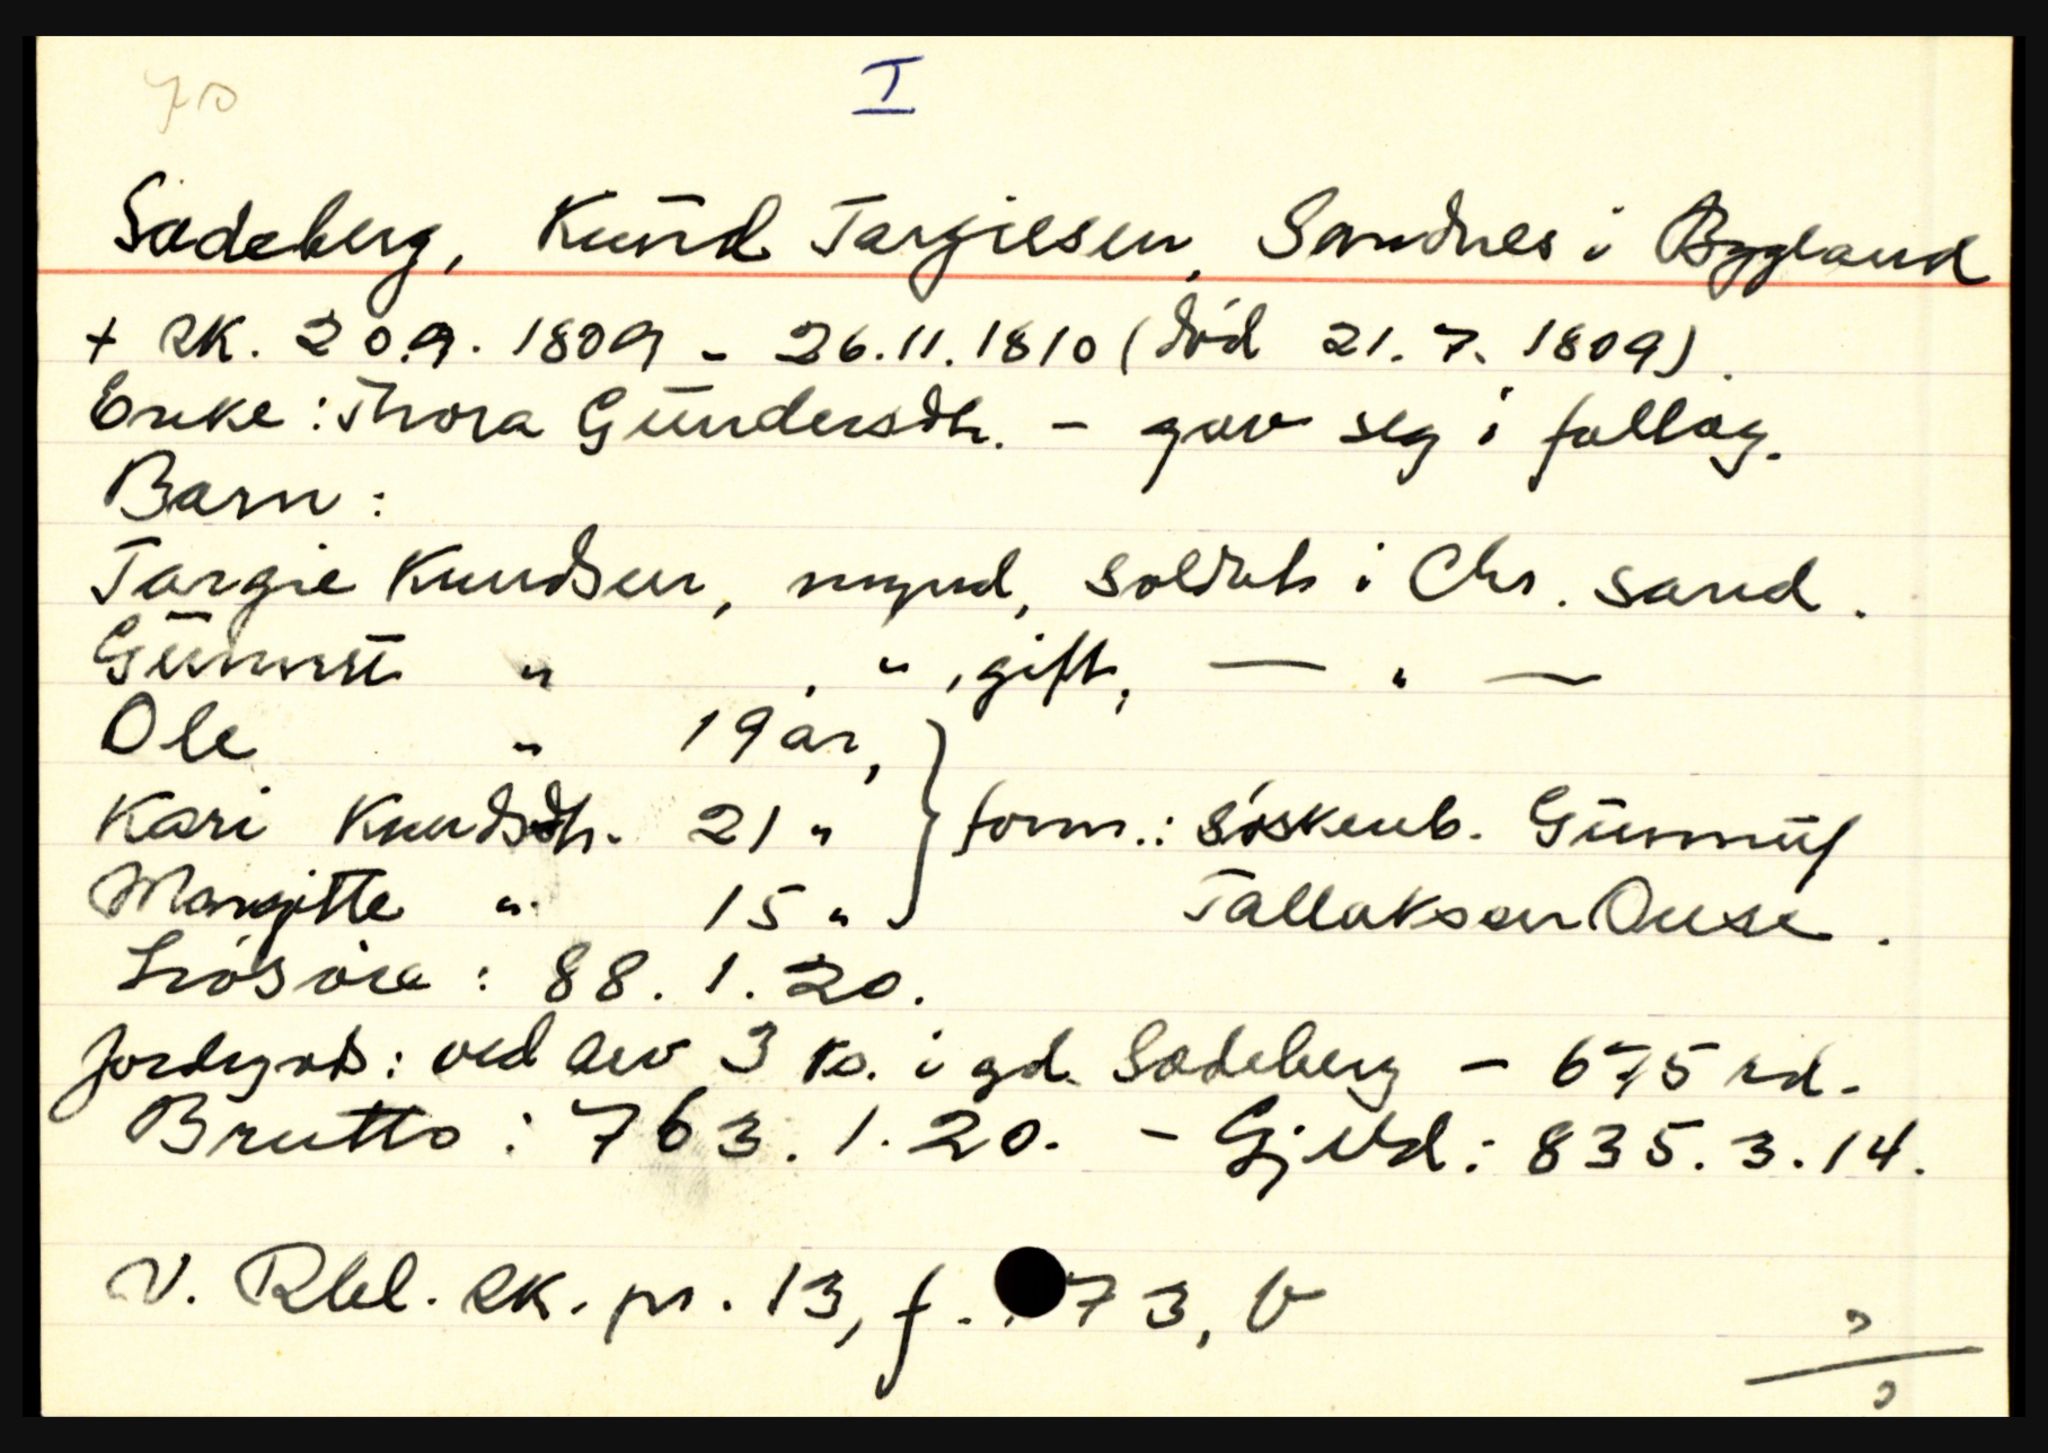 70
I
Sadeberg, Knud Targiesen, Sandnes i Bygland
+ RK. 20.9. 1809 - 26.11.1810 (död 21.7.1809).
Enke: Thora Gundersdtr. - gav seg i fallag.
Barn:
Targie Knudsen, mynd, soldat i Chr. sand.
Gunnuf " " , gift, — " —
Ole " 19 år,
Kari Knudsdtr. 21 " } form.: söskenb. Gunnuf
Margitte " 15 " Tallaksen Ouse.
Lösöre: 88.1.20.
Jordegods: ved arv 3 ks. i gd. Sadeberg - 675 rd.
Brutto: 763.1.20. - Gjeld: 835.3.14.
V. Rbl. RK. pr. 13, f. 73, b